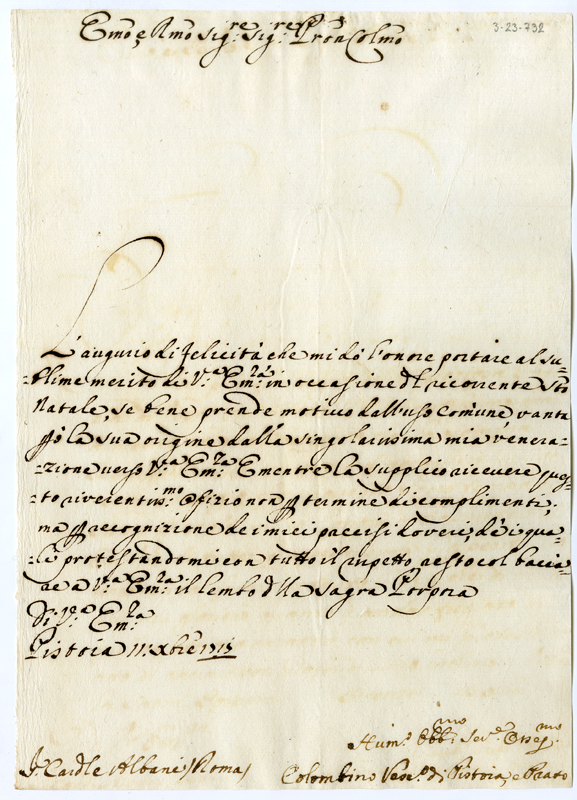 3-23-732
Emo, e Rmo Sig:re Sig:re Pron Colmo
L'augurio di felicità che mi dò l'onore portare al su-
-blime merito di V.a Em:za in occasione dl ricorrente Sto
Natale, se bene prende motivo dall'uso comune, vanta
però la sua origine dalla singolarissima mia venera-
-zione verso V.ra Em:za E mentre la supplico ricevere ques-
-to riverentiss:mo ofizio non per termine di complimenti,
ma per recognizione de i miei precisi doveri, de i qua-
-li protestandomi con tutto il rispetto resto col bacia-
re a V.a Em:za il lembo dlla Sagra Porpora
Di V.a Em:za
Pistoia 11: Xbre 1713
Hum.o Obb:mo Ser.e Osseq:mo
Colombino Vesc.o di Pistoia, e Prato
Sr. Cardle Albani / Roma /